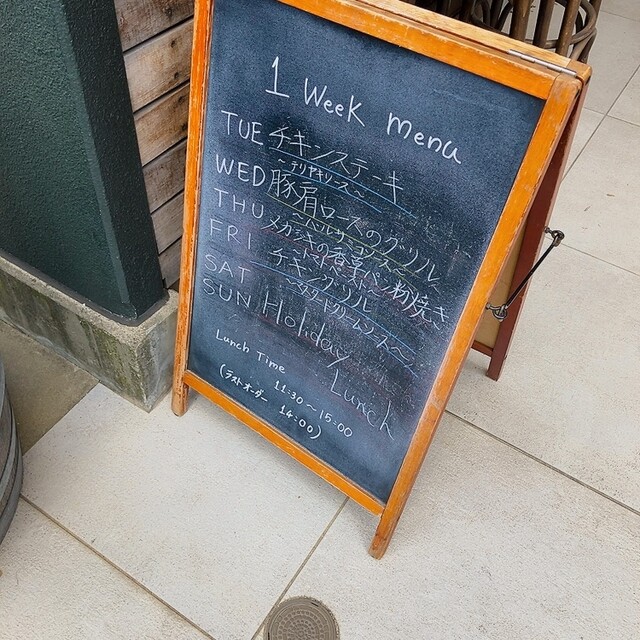 1 Week menu
TUE チキンステーキ
〜テリヤキソース〜
WED 豚肩ロースのグリル
〜バルサミコソース〜
THU メカジキの香草パン粉焼き
〜トマト
FRI チキングリル
〜マスタードクリームソース〜
SAT
SUN Holiday Lunch
Lunch Time
11:30〜15:00
(ラストオーダー 14:00)